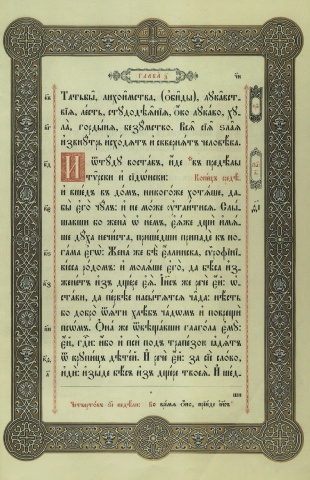 ГЛАВА з҃
Татьбы̑, лихоимства, (ѻби̑ды), лꙋкавст-
вїѧ, лесть, стꙋдодѣѧ́нїѧ, ѻ́ко лꙋкаво, хꙋ-
ла̀, гордынѧ, безꙋмство. Всѧ̑ сїѧ̑ ѕла̑ѧ
извнꙋтрь исходѧтъ и сквернѧтъ человѣ́ка.
И ѿтꙋдꙋ воста́въ, и́де въ предѣ́лы
тѵ́рски и сїдѡ́нски: Конецъ недѣ́.
и вшедъ въ до́мъ, никогоже хотѧше, да-
бы̀ є҆гѡ̀ чꙋлъ: и не може ᲂу҆таитисѧ. Слы-
шавши бо жена̀ ѡ не́мъ, є҆ѧже дщи имѧ-
ше дꙋха нечиста, пришедши припадѐ къ но-
гама є҆гѡ̀: Жена же бѣ̀ є҆ллинска, сѵрофїнї-
кїсса родомъ: и молѧше є҆го̀, да бѣса из-
женетъ изъ дщере є҆ѧ̀. І҆и҃съ же речѐ є҆́й: ѡ-
стави, да первѣе насытѧтсѧ ча̑да: нѣсть
бо добро̀ ѿѧти хлѣбъ ча́дѡмъ и поврещи
псѡ́мъ. Ѻ҆на же ѿвѣщавши глагола є҆мꙋ̀:
є҆́й, гдⷭ҇и: и́бо и пси под трапезою ꙗ҆дѧтъ
ѿ крꙋпицъ дѣте́й. И речѐ є҆́й: за сїѐ сло́во,
идѝ: изы́де бѣсъ изъ дщере твоеѧ̀. И шед-
ши
Четвертокъ ... недѣли: Во время ѻно, прїиде І҆и҃съ